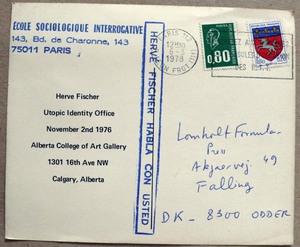 ECOLE SOCIOLOGIQUE INTERROGATIVE
143, Bd. de Charonne, 143
75011 PARIS
HERVE FISCHER HABLA CON USTED
Herve Fischer
Utopic Identity Office
November 2nd 1976
Alberta College of Art Gallery
1301 16th Ave NW
Calgary, Alberta
PARIS
1978
0.80
Lomholt Formular
Pro
Akjaervej 49
Falling
DK - 8300 ODDER